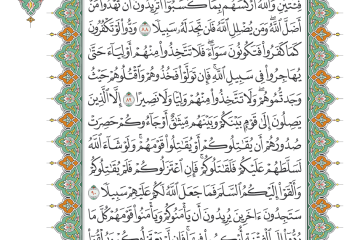 فِئَتَيْنِ وَاللَّهُ أَرْكَسَهُم بِمَا كَسَبُوا أَتُرِيدُونَ أَن تَهْدُوا مَنْ
أَضَلَّ اللَّهُ وَمَن يُضْلِلِ اللَّهُ فَلَن تَجِدَ لَهُ سَبِيلًا ٨٨ وَدُّوا لَوْ تَكْفُرُونَ
كَمَا كَفَرُوا فَتَكُونُونَ سَوَاءً فَلَا تَتَّخِذُوا مِنْهُمْ أَوْلِيَاءَ حَتَّىٰ
يُهَاجِرُوا فِي سَبِيلِ اللَّهِ فَإِن تَوَلَّوْا فَخُذُوهُمْ وَاقْتُلُوهُمْ حَيْثُ
وَجَدتُّمُوهُمْ وَلَا تَتَّخِذُوا مِنْهُمْ وَلِيًّا وَلَا نَصِيرًا ٨٩ إِلَّا الَّذِينَ
يَصِلُونَ إِلَىٰ قَوْمٍ بَيْنَكُمْ وَبَيْنَهُم مِّيثَاقٌ أَوْ جَاءُوكُمْ حَصِرَتْ
صُدُورُهُمْ أَن يُقَاتِلُوكُمْ أَوْ يُقَاتِلُوا قَوْمَهُمْ وَلَوْ شَاءَ اللَّهُ
لَسَلَّطَهُمْ عَلَيْكُمْ فَلَقَاتَلُوكُمْ فَإِنِ اعْتَزَلُوكُمْ فَلَمْ يُقَاتِلُوكُمْ
وَأَلْقَوْا إِلَيْكُمُ السَّلَمَ فَمَا جَعَلَ اللَّهُ لَكُمْ عَلَيْهِمْ سَبِيلًا ٩٠
سَتَجِدُونَ آخَرِينَ يُرِيدُونَ أَن يَأْمَنُوكُمْ وَيَأْمَنُوا قَوْمَهُمْ كُلَّ مَا